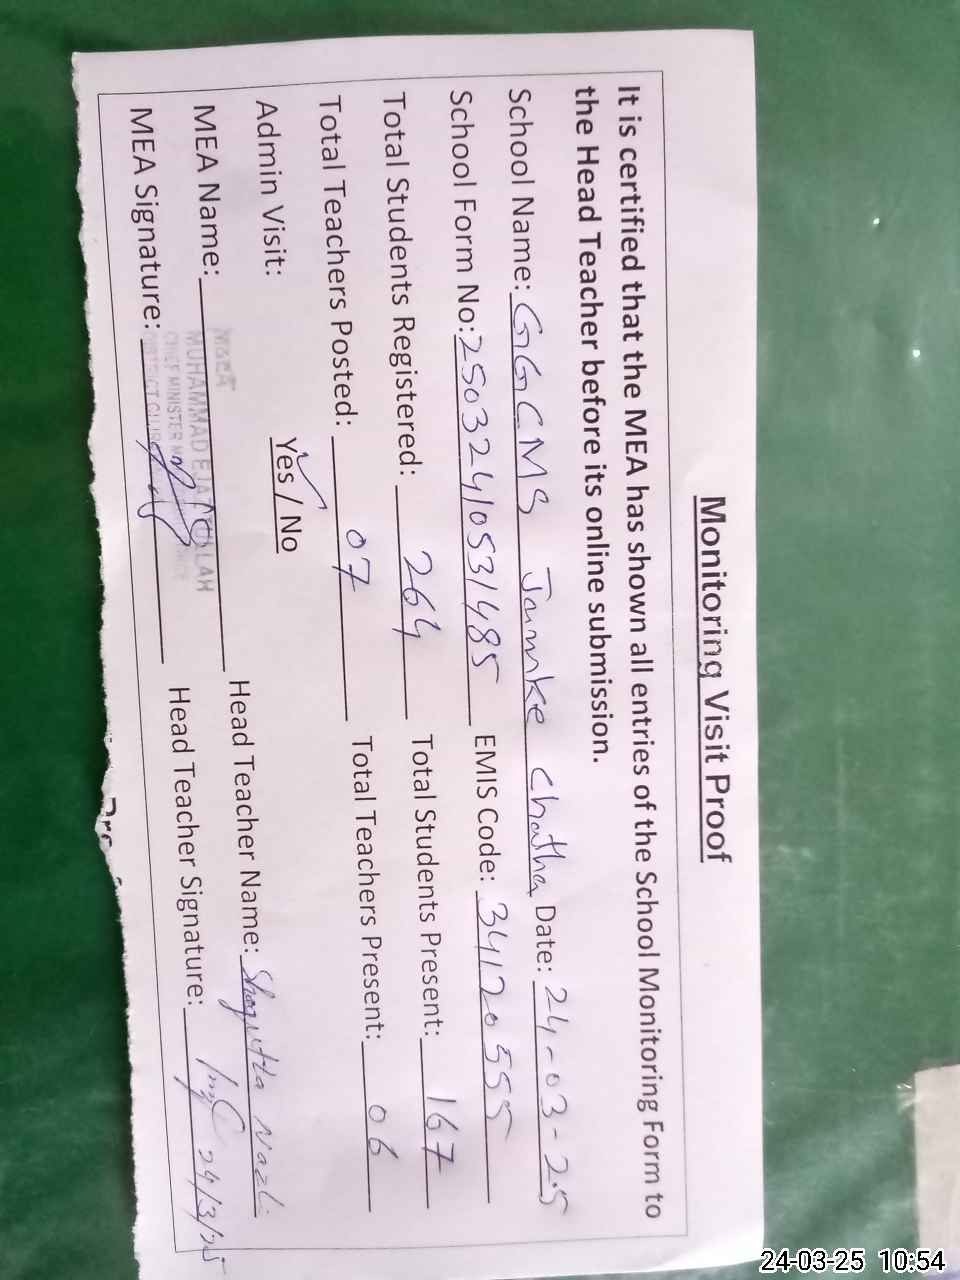 Monitoring Visit Proof
It is certified that the MEA has shown all entries of the School Monitoring Form to
the Head Teacher before its online submission.
School Name: GGCMS Jamke Chatha Date: 24-03-25
School Form No: 25032410531485 EMIS Code: 34120555
Total Students Registered: 264 Total Students Present: 167
Total Teachers Posted: 07 Total Teachers Present: 06
Admin Visit: Yes / No
MEA Name: Head Teacher Name: Shagufta Nazli
MEA Signature: Head Teacher Signature: 24/3/25
M&EA
MUHAMMAD EJAZ ULLAH
CHIEF MINISTER
DISTRICT
24-03-25 10:54